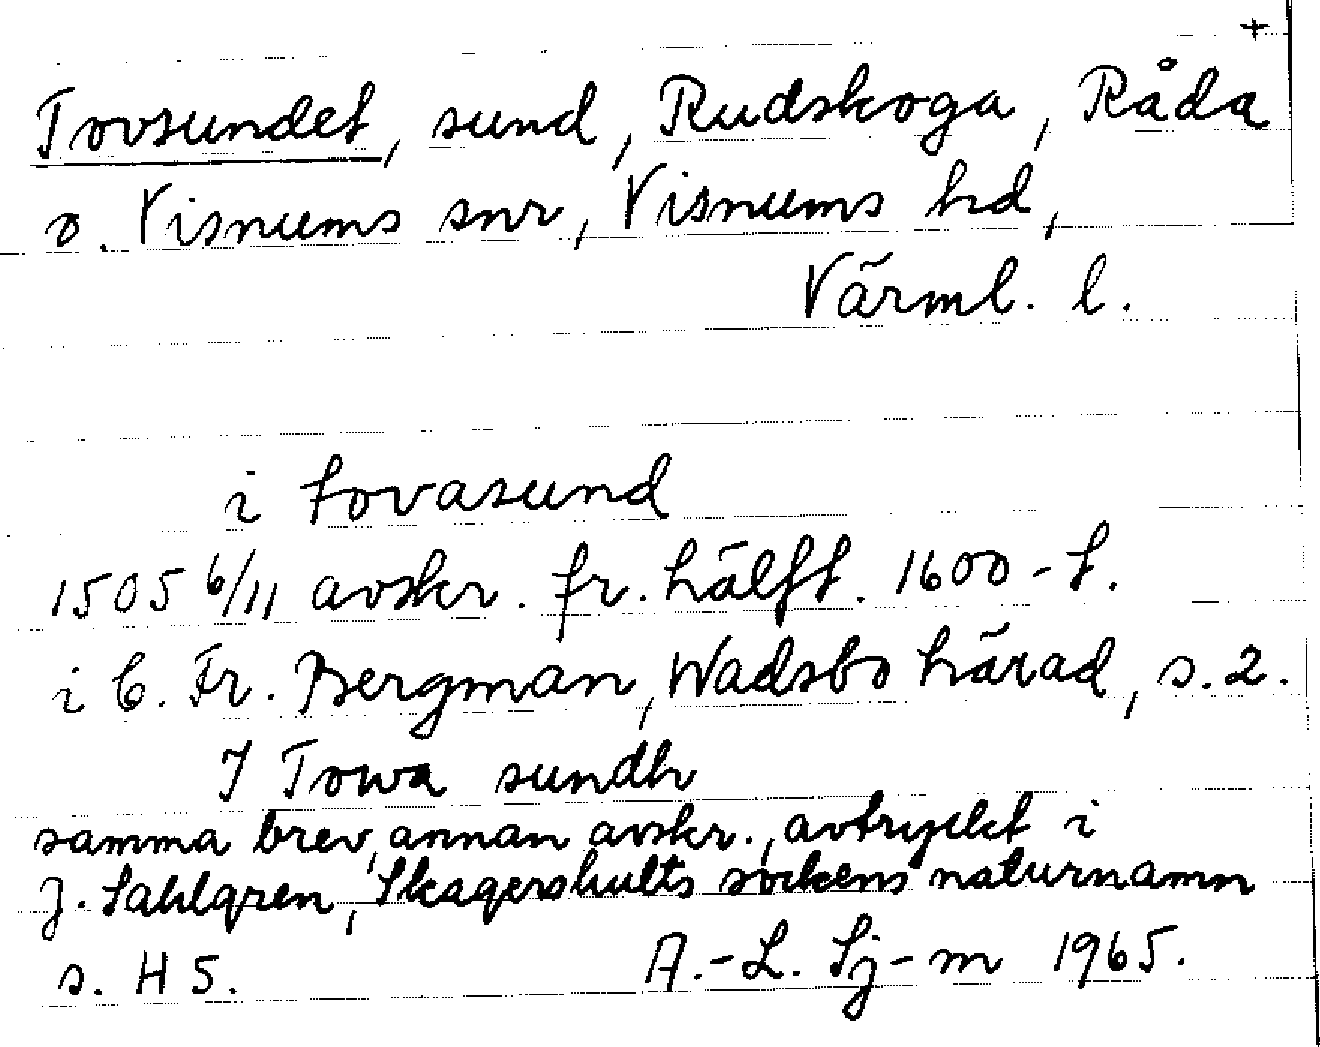 +
Tovsundet, sund, Rudskoga, Råda
o. Visnums snr, Visnums hd,
Värml. l.
i tovasund
1505 6/11 avskr. fr. hälft. 1600-t.
i C. Fr. Bergman, Wadsbo härad, s. 2.
I Towa sundh
samma brev, annan avskr., avtryckt i
J. Sahlgren, Skagershults sockens naturnamn
s. H 5.
A.-L. Sj-m 1965.